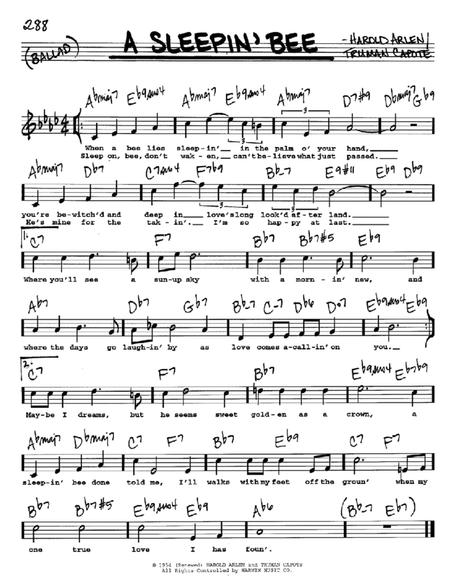 288
A SLEEPIN' BEE
- HAROLD ARLEN/
TRUMAN CAPOTE
(BALLAD)
Abmaj7 Eb9sus4 Abmaj7 Eb9sus4 Abmaj7 D7#9 Dbmaj7 Gb9
When a bee lies sleep-in' in the palm o' your hand,
Sleep on, bee, don't wak-en, can't be-lieve what just passed.
Abmaj7 Db7 C7sus4 F7b9 Bb-7 E9#11 Eb9 Db9
you're be-witch'd and deep in love's long look'd af-ter land.
He's mine for the tak-in'. I'm so hap-py at last.
1. C7 F7 Bb7 Bb7#5 Eb9
Where you'll see a sun-up sky with a morn-in' new, and
Ab7 Db7 Gb7 Bb-7 C-7 Db6 Do7 Eb9sus4 Eb9
where the days go laugh-in' by as love comes a-call-in' on you.
2. C7 F7 Bb7 Eb9sus4 Eb7b9
May-be I dreams, but he seems sweet gold-en as a crown, a
Abmaj7 Dbmaj7 C7 F7 Bb7 Eb9 C7 F7
sleep-in' bee done told me, I'll walks with my feet off the groun' when my
Bb7 Bb7#5 Eb9sus4 Eb9 Ab6 (Bb-7 Eb7)
one true love I has foun'.
© 1954 (Renewed) HAROLD ARLEN and TRUMAN CAPOTE
All Rights Controlled by HARWIN MUSIC CO.